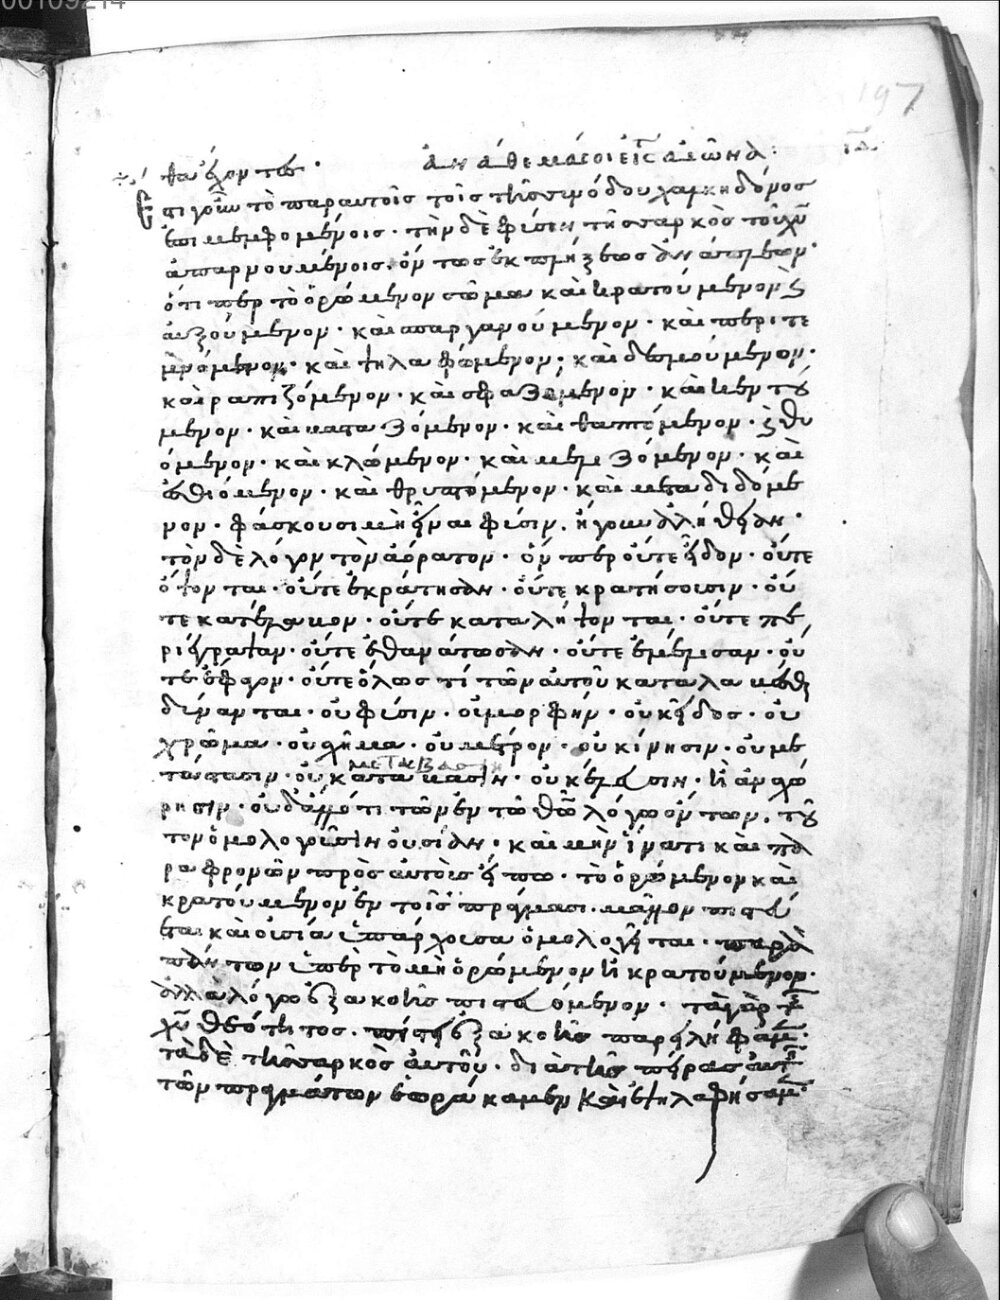 00109214
197
θα ἔχοντες · ἀνάθεμά σοι εἰς αἰῶνα ·
Ἐπὶ γοῦν τὸ παρ αὐτοῖς τοῖς τῆς συνόδου χαλκηδόνος
ἐπιμεμφομένοις · τὴν δὲ φύσιν τῆς σαρκὸς τοῦ χῦ
ἀπαρνουμένοις ·
ὅτι περ τὸ ὁρώμενον σῶμα καὶ κρατούμενον
αὐξούμενον · καὶ σπαργανούμενον · καὶ περιτε
μνόμενον · καὶ ψηλαφώμενον · καὶ δεσμούμενον ·
καὶ ραπιζόμενον · καὶ σφαζόμενον · καὶ κεντού
μενον · καὶ · καὶ θαπτόμενον · θυ
όμενον · καὶ κλώμενον · καὶ μεμιζόμενον · καὶ
ἐσθιόμενον · καὶ θρυπτόμενον · καὶ μεταδιδόμε
νον · φάσκουσι μὴ εἶναι φύσιν · ἤγουν ἀλήθειαν ·
τὸν δὲ λόγον τὸν ἀόρατον · ὅν περ οὔτε εἶδον · οὔτε
ὄψονται · οὔτε ἐκράτησαν · οὔτε κρατήσουσιν · οὔ
τε κατέλαβον · οὔτε καταλήψονται · οὔτε πε
ριέγραψαν · οὔτε ἐθανάτωσαν · οὔτε ἐμέμισαν · οὔ
τε ἔφαγον · οὔτε ὅλως τί τῶν αὐτοῦ καταλαβέσθαι
δύνανται · οὐ φύσιν · οὐ μορφὴν · οὐκ εἶδος · οὐ
χρῶμα · οὐ σχῆμα · οὐ μέτρον · οὐ κίνησιν · οὐ με
μετάβασιν
τάστασιν · οὐ κατάβασιν · οὐκ · ἢ ἀναχώ
ρησιν · οὐδ ἄλλό τι τῶν ἐν τῶ θῶ λόγω ὄντων · τοῦ
τον ὁμολογοῦσιν οὐσίαν · καὶ μὴν ἵνα τι καὶ πα
ραφρονῶν πρὸς αὐτοὺς εἴπω · τὸ ὁρώμενον καὶ
κρατούμενον ἐν τοῖς πράγμασι · μᾶλλον πιστεύ
εται καὶ οὐσία ὑπάρχουσα ὁμολογεῖται · παρὰ
πάντων ὑπὲρ τὸ μὴ ὁρώμενον ἢ κρατούμενον ·
ἀλλὰ λόγω ἐξ ἀκοῆς πιστευόμενον · τὰ γὰρ τῆς
χῦ θεότητος · πίστει ἐξ ἀκοῆς παρειλήφαμεν ·
τὰ δὲ τῆς σαρκὸς αὐτοῦ · διὰ τῆς πείρας αὐτῆς
τῶν πραγμάτων ἑωράκαμεν καὶ ἐψηλαφήσαμεν